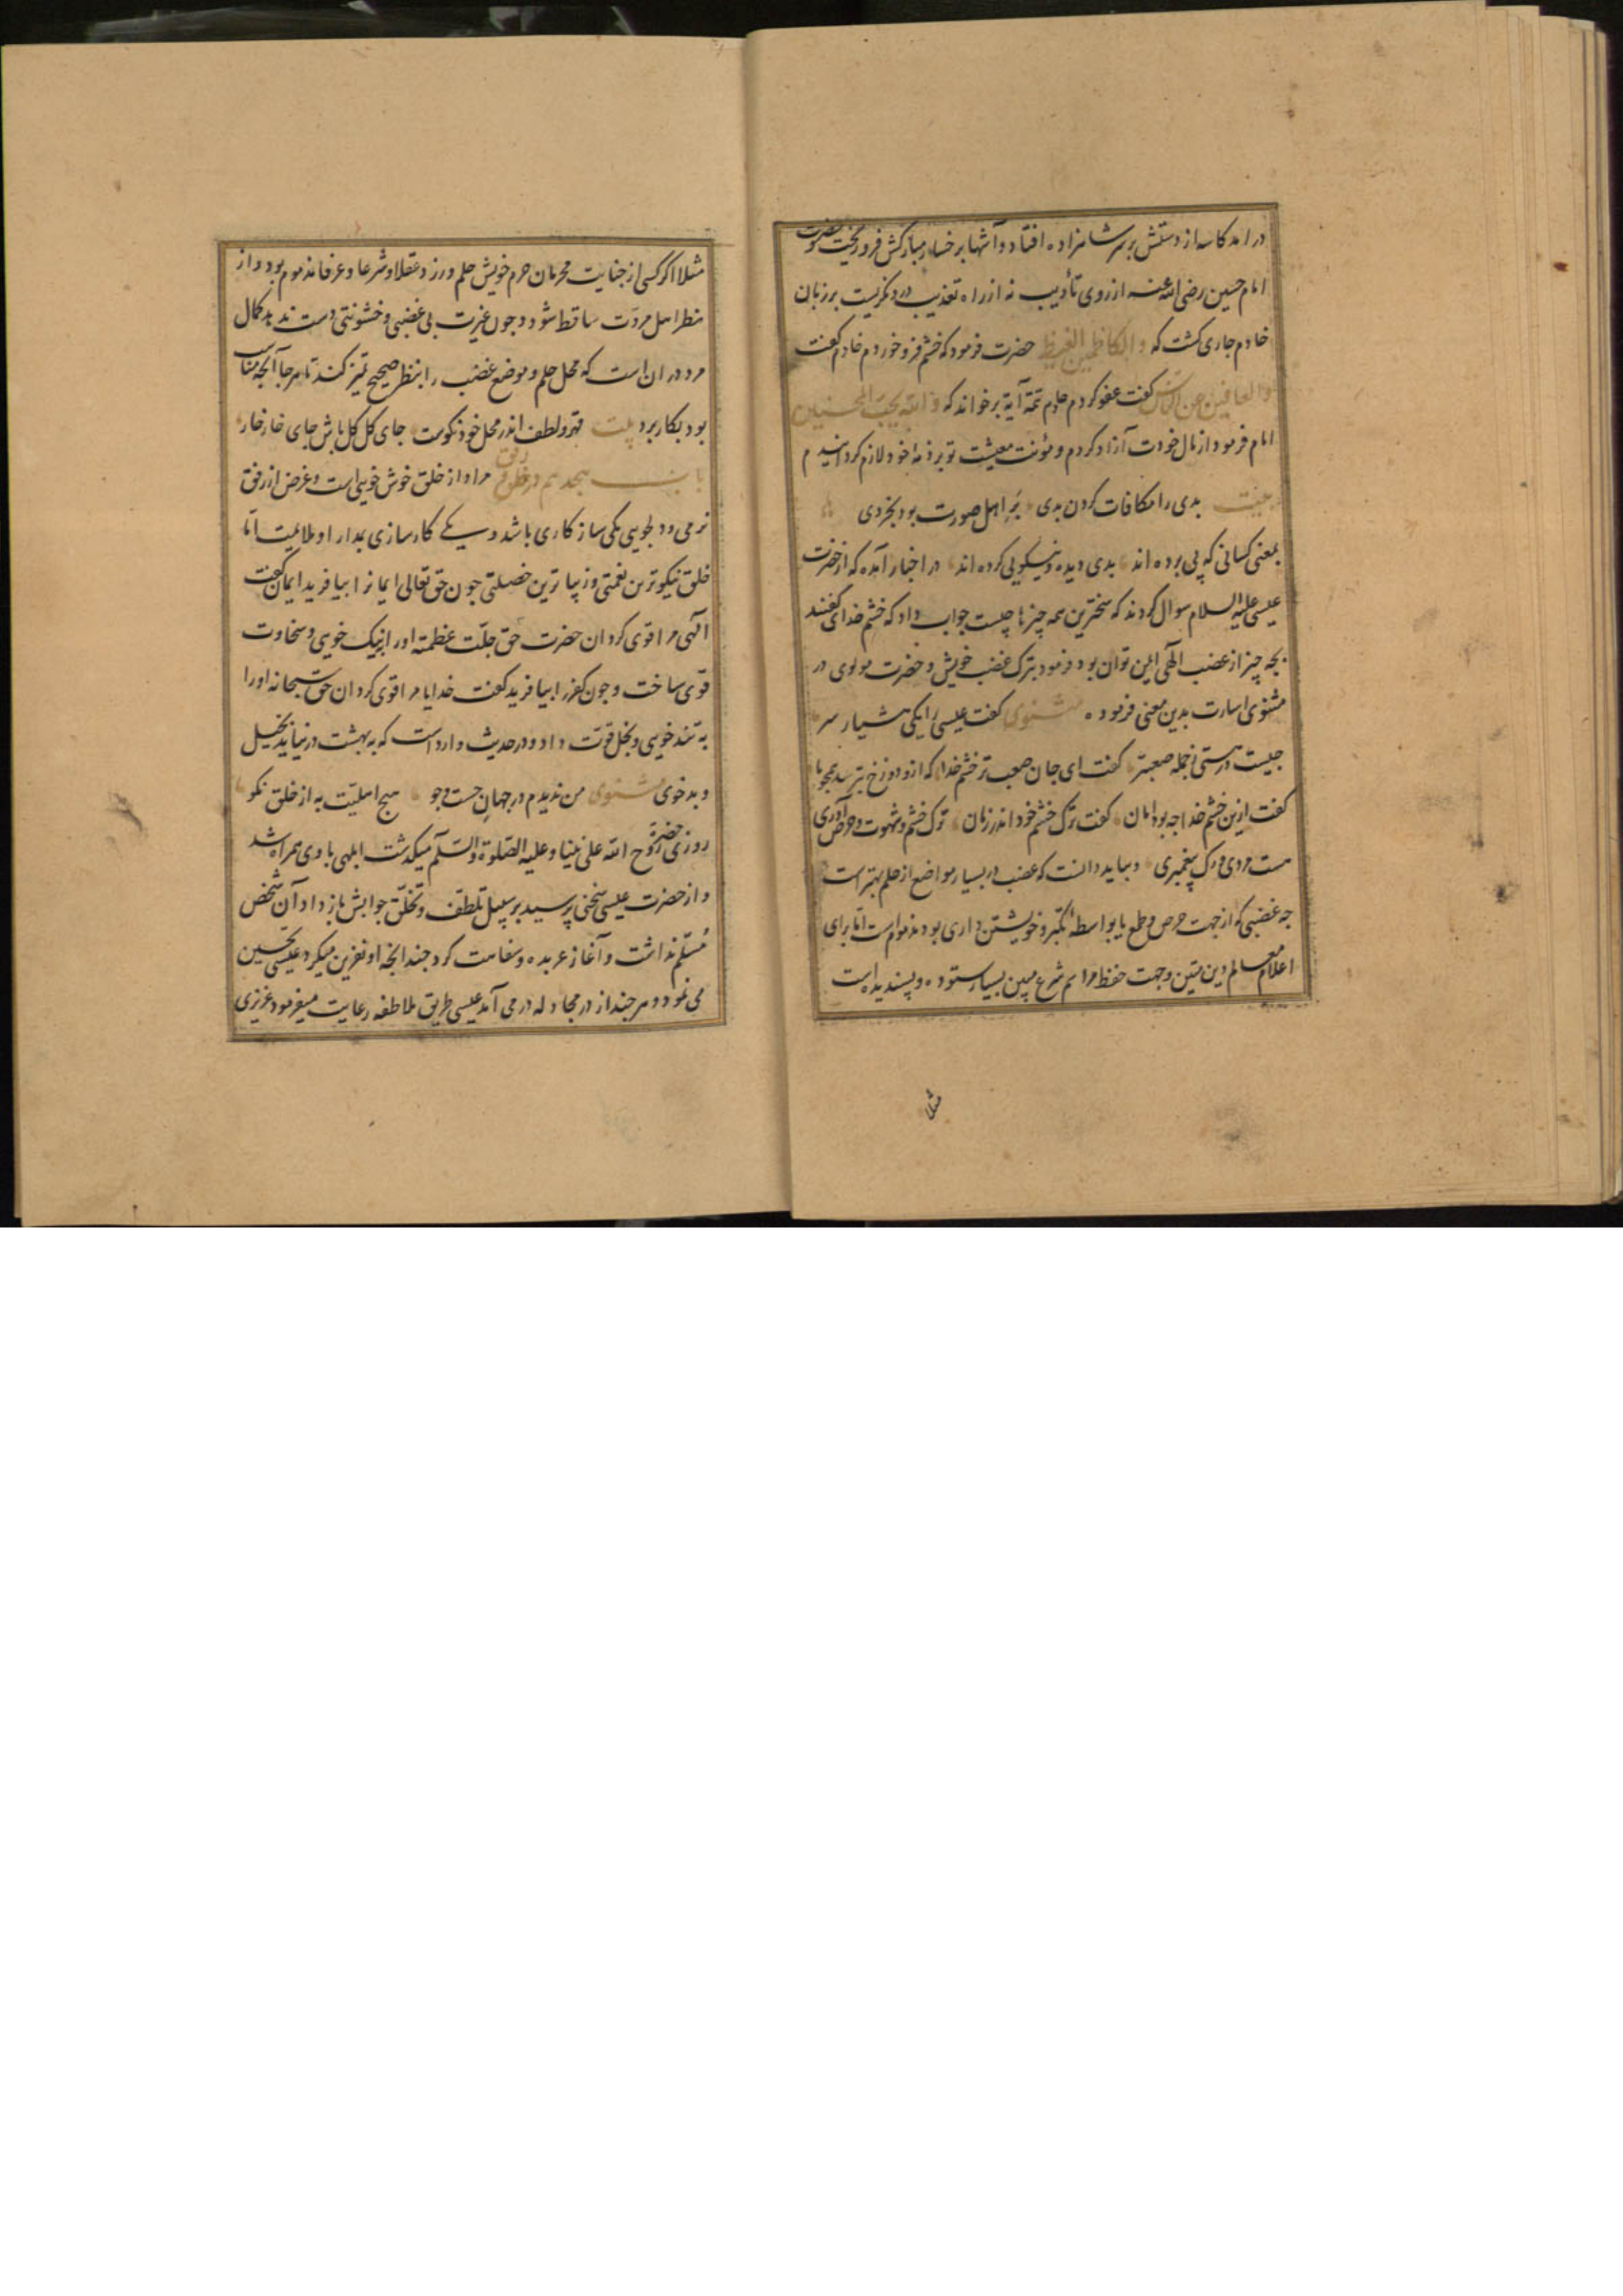 در امد کاسه از دستش بر سر شاهزاده افتاد و آشها بر خساره مبارکش فرو ریخت و حضرت
امام حسین رضی الله عنه از روی تأدیب نه از راه تعذیب درو نگریست بر زبان
خادم جاری گشت که والکاظمین الغیظ حضرت فرمود که خشم فرو خوردم خادم گفت
والعافین عن الناس گفت عفو کردم خادم تتمه آیة برخواند که والله یحب المحسنین
امام فرمود از مال خودت آزاد کردم و مؤنت معیشت تو بر ذمه خود لازم گردانیدم
بیت بدی را مکافات کردن بدی بر اهل صورت بود بخردی
بمعنی کسانی که پی برده اند بدی دیده و نیکویی کرده اند در اخبار آمده که از حضرت
عیسی علیه السلام سوال کردند که سختترین همه چیزها چیست جواب داد که خشم خدای گفتند
بچه چیز از غضب الهی ایمن توان بود فرمود بترک غضب خویش و حضرت مولوی در
مثنوی اشارت بدین معنی فرموده مثنوی گفت عیسی را یکی هشیار سر
چیست در هستی ز جمله صعبتر گفت ای جان صعب تر خشم خدا که ازو دوزخ بترسد همچو ما
گفت ازین خشم خدا چه بود امان گفت ترک خشم خود اندر زمان ترک خشم و شهوت و حرص آوری
هست مردی و رک پیغمبری و بباید دانست که غضب در بسیار مواضع از حلم بهتر است
چه غضبی که از جهت حرص و طمع یا بواسطه تکبر و خویشتن داری بود مذموم است اما برای
اعلام معالم دین متین و جهت حفظ مراسم شرع مبین بسیار ستوده و پسندیده است
مثلا
مثلا اکر کسی از جنایت محرمان حرم خویش حلم ورزد عقلا و شرعا و عرفا مذموم بود و از
نظر اهل مروت ساقط شود و چون غیرت بی غضبی و خشونتی دست ندهد کمال
مرد در ان است که محل حلم و موضع غضب را بنظر صحیح تمیز کند تا هر جا آنچه مناسب
بود بکار برد بیت قهر و لطف اندر محل خود نکوست جای کل کل باش جای خار خار
باب هجدهم در خلق و رفق مراد از خلق خوش خویی است و غرض از رفق
نرمی و دلجویی یکی سازکاری باشد و یکی کارسازی بمدارا و ملائمت اما
خلق نیکوترین نعمتی و زیباترین خصلتی چون حق تعالی ایمانرا بیافرید ایمان گفت
الهی مرا قوی گردان حضرت حق جلت عظمته اورا بنیک خویی و سخاوت
قوی ساخت و چون کفر را بیافرید گفت خدایا مرا قوی گردان حق سبحانه اورا
به تند خویی و بخل قوت داد و در حدیث وارد است که به بهشت در نیاید بخیل
و بد خوی مثنوی من ندیدم در جهان جست و جو هیچ اهلیت به از خلق نکو
روزی حضرت روح الله علی نبینا و علیه الصلوة والسلم میگذشت ابلهی با وی همراه شد
و از حضرت عیسی سخنی پرسید بر سبیل تلطف و تخلق جوابش باز داد آن شخص
مسلم نداشت و آغاز عربده و سفاهت کرد چندانچه او نفرین میکرد عیسی تحسین
می نمود و هر چند از در مجادله در می آمد عیسی طریق ملاطفه رعایت میفرمود عزیزی